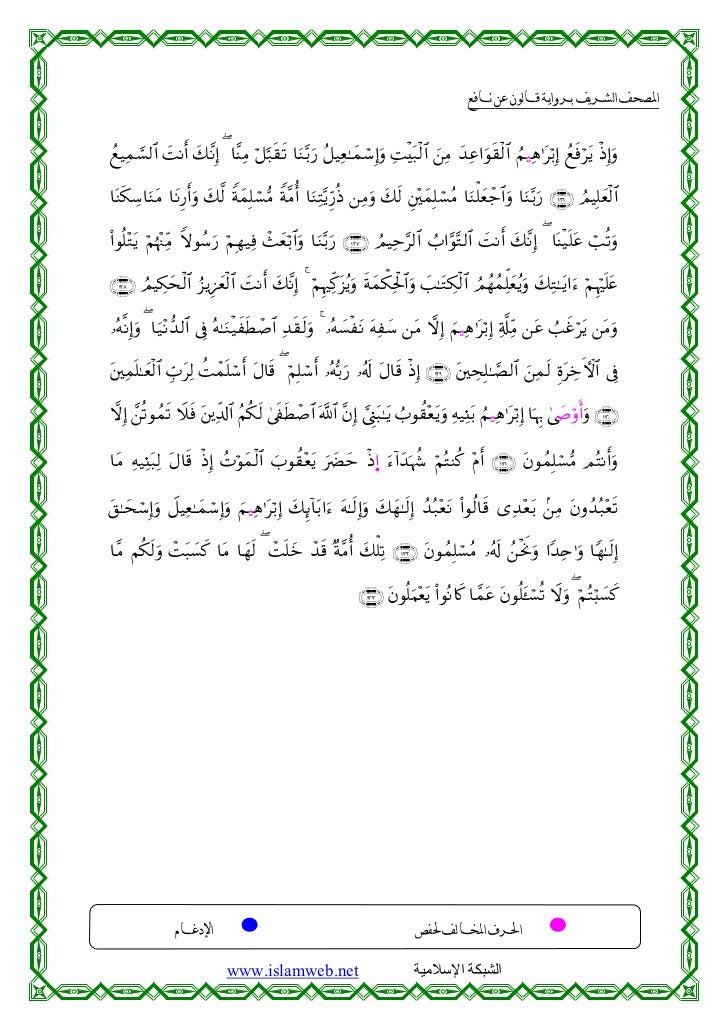 المصحف الشريف برواية قالون عن نافع
وَإِذْ يَرْفَعُ إِبْرَٰهِيمُ ٱلْقَوَاعِدَ مِنَ ٱلْبَيْتِ وَإِسْمَٰعِيلُ رَبَّنَا تَقَبَّلْ مِنَّآ ۖ إِنَّكَ أَنتَ ٱلسَّمِيعُ
ٱلْعَلِيمُ ۝١٢٦ رَبَّنَا وَٱجْعَلْنَا مُسْلِمَيْنِ لَكَ وَمِن ذُرِّيَّتِنَآ أُمَّةً مُّسْلِمَةً لَّكَ وَأَرِنَا مَنَاسِكَنَا
وَتُبْ عَلَيْنَآ ۖ إِنَّكَ أَنتَ ٱلتَّوَّابُ ٱلرَّحِيمُ ۝١٢٧ رَبَّنَا وَٱبْعَثْ فِيهِمْ رَسُولًا مِّنْهُمْ يَتْلُوا۟
عَلَيْهِمْ ءَايَٰتِكَ وَيُعَلِّمُهُمُ ٱلْكِتَٰبَ وَٱلْحِكْمَةَ وَيُزَكِّيهِمْ ۚ إِنَّكَ أَنتَ ٱلْعَزِيزُ ٱلْحَكِيمُ ۝١٢٨
وَمَن يَرْغَبُ عَن مِّلَّةِ إِبْرَٰهِيمَ إِلَّا مَن سَفِهَ نَفْسَهُۥ ۚ وَلَقَدِ ٱصْطَفَيْنَٰهُ فِى ٱلدُّنْيَا ۖ وَإِنَّهُۥ
فِى ٱلْءَاخِرَةِ لَمِنَ ٱلصَّٰلِحِينَ ۝١٢٩ إِذْ قَالَ لَهُۥ رَبُّهُۥٓ أَسْلِمْ ۖ قَالَ أَسْلَمْتُ لِرَبِّ ٱلْعَٰلَمِينَ
۝١٣٠ وَأَوْصَىٰ بِهَآ إِبْرَٰهِيمُ بَنِيهِ وَيَعْقُوبُ يَٰبَنِىَّ إِنَّ ٱللَّهَ ٱصْطَفَىٰ لَكُمُ ٱلدِّينَ فَلَا تَمُوتُنَّ إِلَّا
وَأَنتُم مُّسْلِمُونَ ۝١٣١ أَمْ كُنتُمْ شُهَدَآءَ إِذْ حَضَرَ يَعْقُوبَ ٱلْمَوْتُ إِذْ قَالَ لِبَنِيهِ مَا
تَعْبُدُونَ مِنۢ بَعْدِى قَالُوا۟ نَعْبُدُ إِلَٰهَكَ وَإِلَٰهَ ءَابَآئِكَ إِبْرَٰهِيمَ وَإِسْمَٰعِيلَ وَإِسْحَٰقَ
إِلَٰهًا وَٰحِدًا وَنَحْنُ لَهُۥ مُسْلِمُونَ ۝١٣٢ تِلْكَ أُمَّةٌ قَدْ خَلَتْ ۖ لَهَا مَا كَسَبَتْ وَلَكُم مَّا
كَسَبْتُمْ ۖ وَلَا تُسْـَٔلُونَ عَمَّا كَانُوا۟ يَعْمَلُونَ ۝١٣٣
الحرف المخالف لحفص الإدغام
الشبكة الإسلامية www.islamweb.net